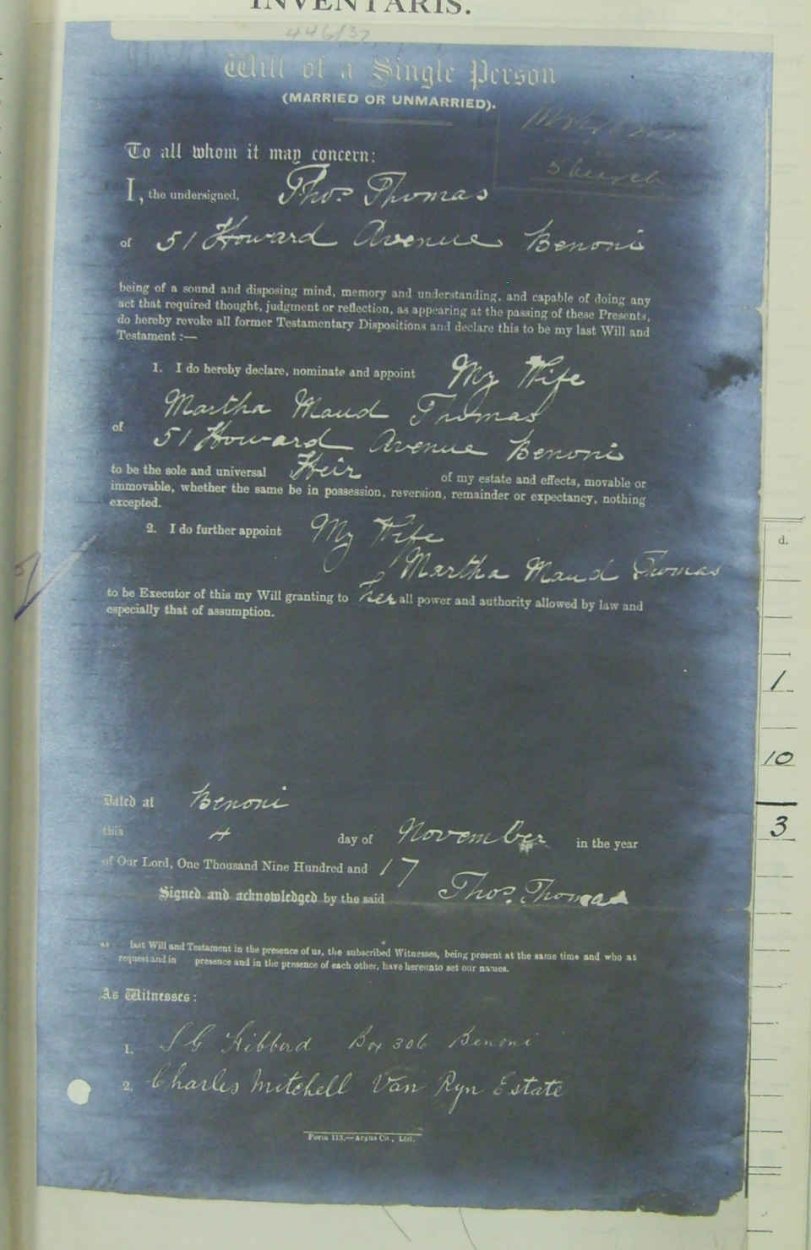 INVENTARIS.
446/37
Will of a Single Person
(MARRIED OR UNMARRIED).
To all whom it may concern:
I, the undersigned, Thos. Thomas
of 51 Howard Avenue Benoni
being of a sound and disposing mind, memory and understanding, and capable of doing any
act that required thought, judgment or reflection, as appearing at the passing of these Presents,
do hereby revoke all former Testamentary Dispositions and declare this to be my last Will and
Testament:—
1. I do hereby declare, nominate and appoint My Wife
Martha Maud Thomas
of 51 Howard Avenue Benoni
to be the sole and universal Heir of my estate and effects, movable or
immovable, whether the same be in possession, reversion, remainder or expectancy, nothing
excepted.
2. I do further appoint My Wife
Martha Maud Thomas
to be Executor of this my Will granting to her all power and authority allowed by law and
especially that of assumption.
Dated at Benoni
this 4 day of November in the year
of Our Lord, One Thousand Nine Hundred and 17
Signed and acknowledged by the said Thos. Thomas
as last Will and Testament in the presence of us, the subscribed Witnesses, being present at the same time and who at
request and in presence and in the presence of each other, have hereunto set our names.
As Witnesses:
1. S G Hibberd Box 306 Benoni
2. Charles Mitchell Van Ryn Estate
Form 113.—Argus Co., Ltd.
d.
1
10
3